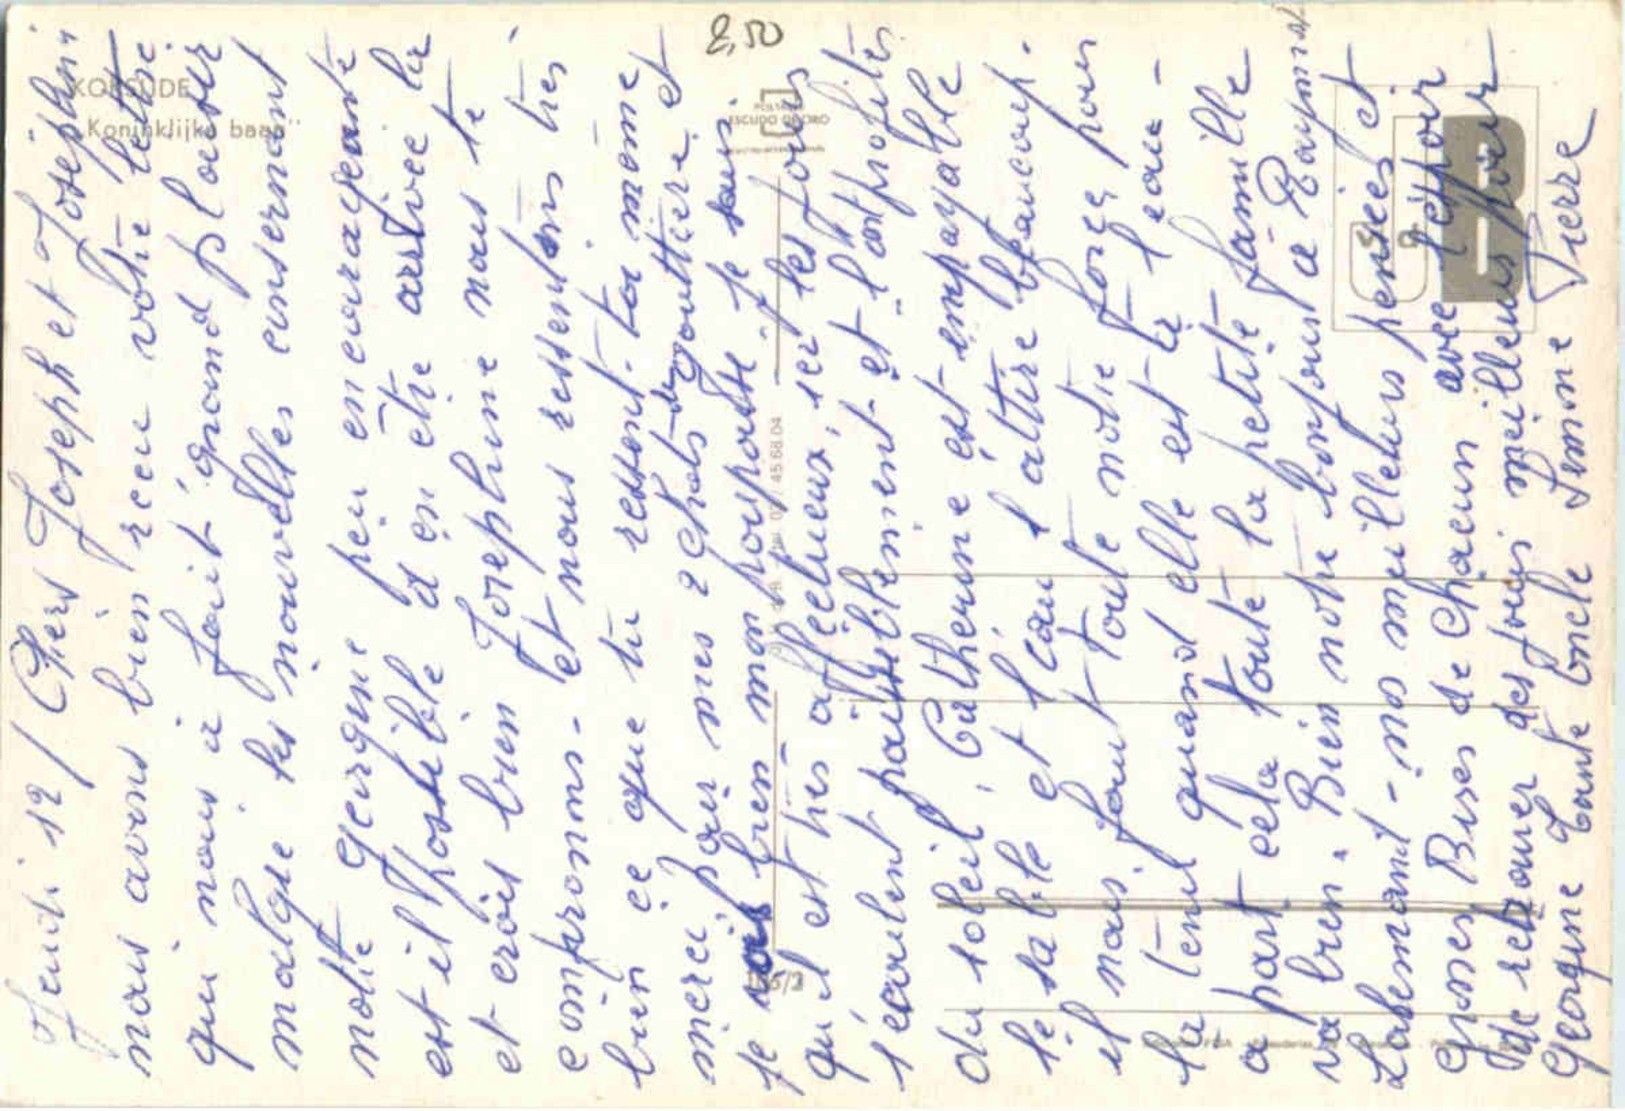 8,50
KOKSIJDE
"Koninklijke baan"
ESCUDO DE ORO
45.68.04
Jeudi 12 / Chers Joseph et Josephine
nous avons bien recu votre lettre
qui nous a fait grand plaisir
malgre les nouvelles consernant
notre Georgine peu encourageante
est il possible d en être arrivée la
et crois bien Josephine nous te
comprenons - et nous ressentons tres
bien ce que tu ressent. toi même
merci pour mes 2 chats de gouttière et
je vois bien mon pouspousse je sais
qu il est très affectueux, ici les jours
s écoulent paisiblement et l ont profite
du soleil, Catherine est impayable
le sable et l eau l attire beaucoup.
il nous faut toute notre force pour
la tenir quand elle est a l eau -
a part cela toute la petite famille
va bien. Bien notre bonjour a Raymond
Labemant - nos meilleurs pensées et
Grosses Bises de Chacun avec l espoir
de retrouver des jours meilleurs pour
Georgine Tante Oncle Pierre